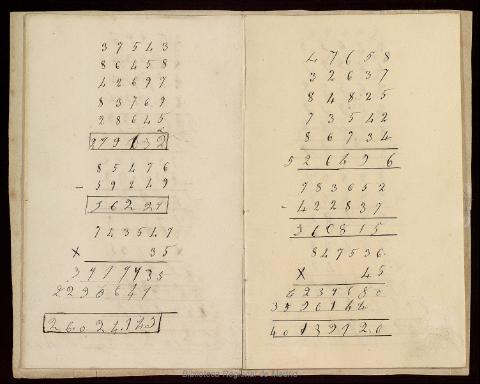 37543
86458
42697
83769
28645
279132
85476
- 59249
36227
743547
X 35
3717735
2230641
26024145
47658
32637
84825
73542
86734
526496
783652
- 422837
360815
847536
X 45
4237680
3590144
40139120
Biblioteca Regional de Madrid